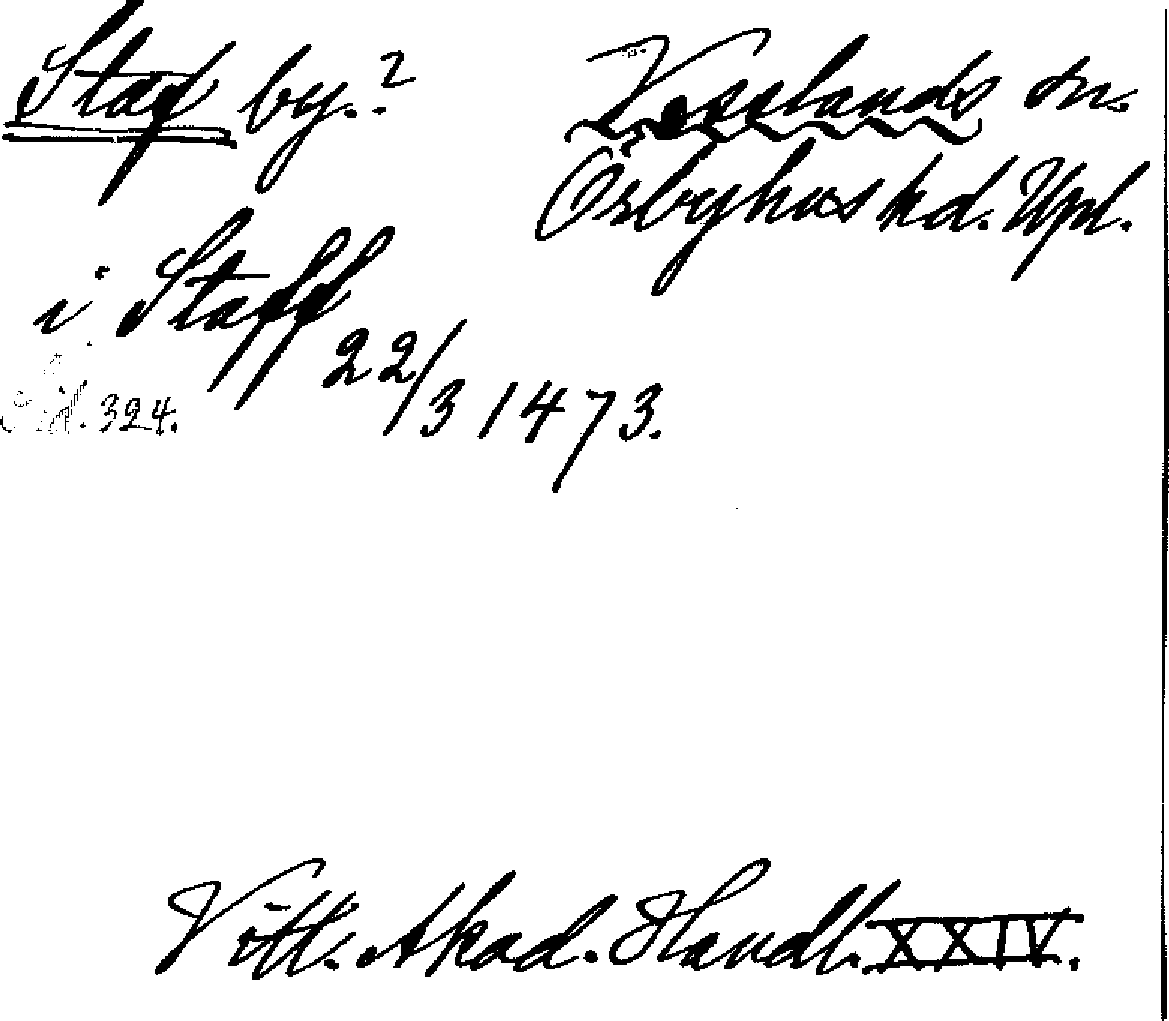 Staf by.?
Vesslands sn.
Örbyhus hd. Upl.
i Staff 22/3 1473.
Sid. 324.
Vitt. Akad. Handl. XXIV.